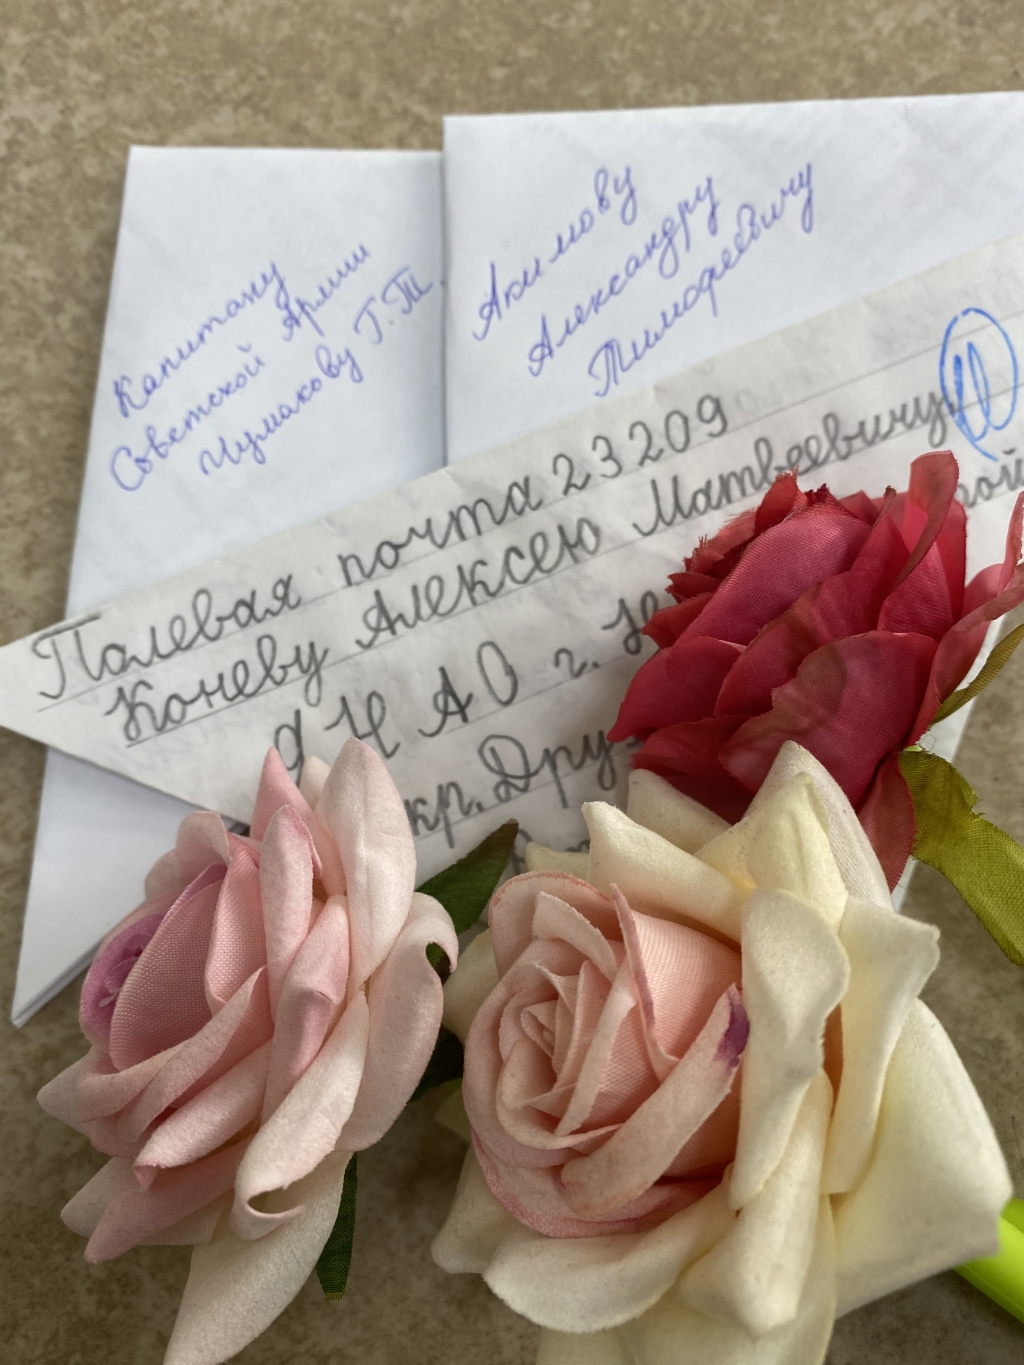 Капитану
Советской Армии
Чумакову Г.Т.
Акимову
Александру
Тимофеевичу
Полевая почта 23209
Коневу Алексею Матвеевичу
ЯНАО г. Н
кр. Дру